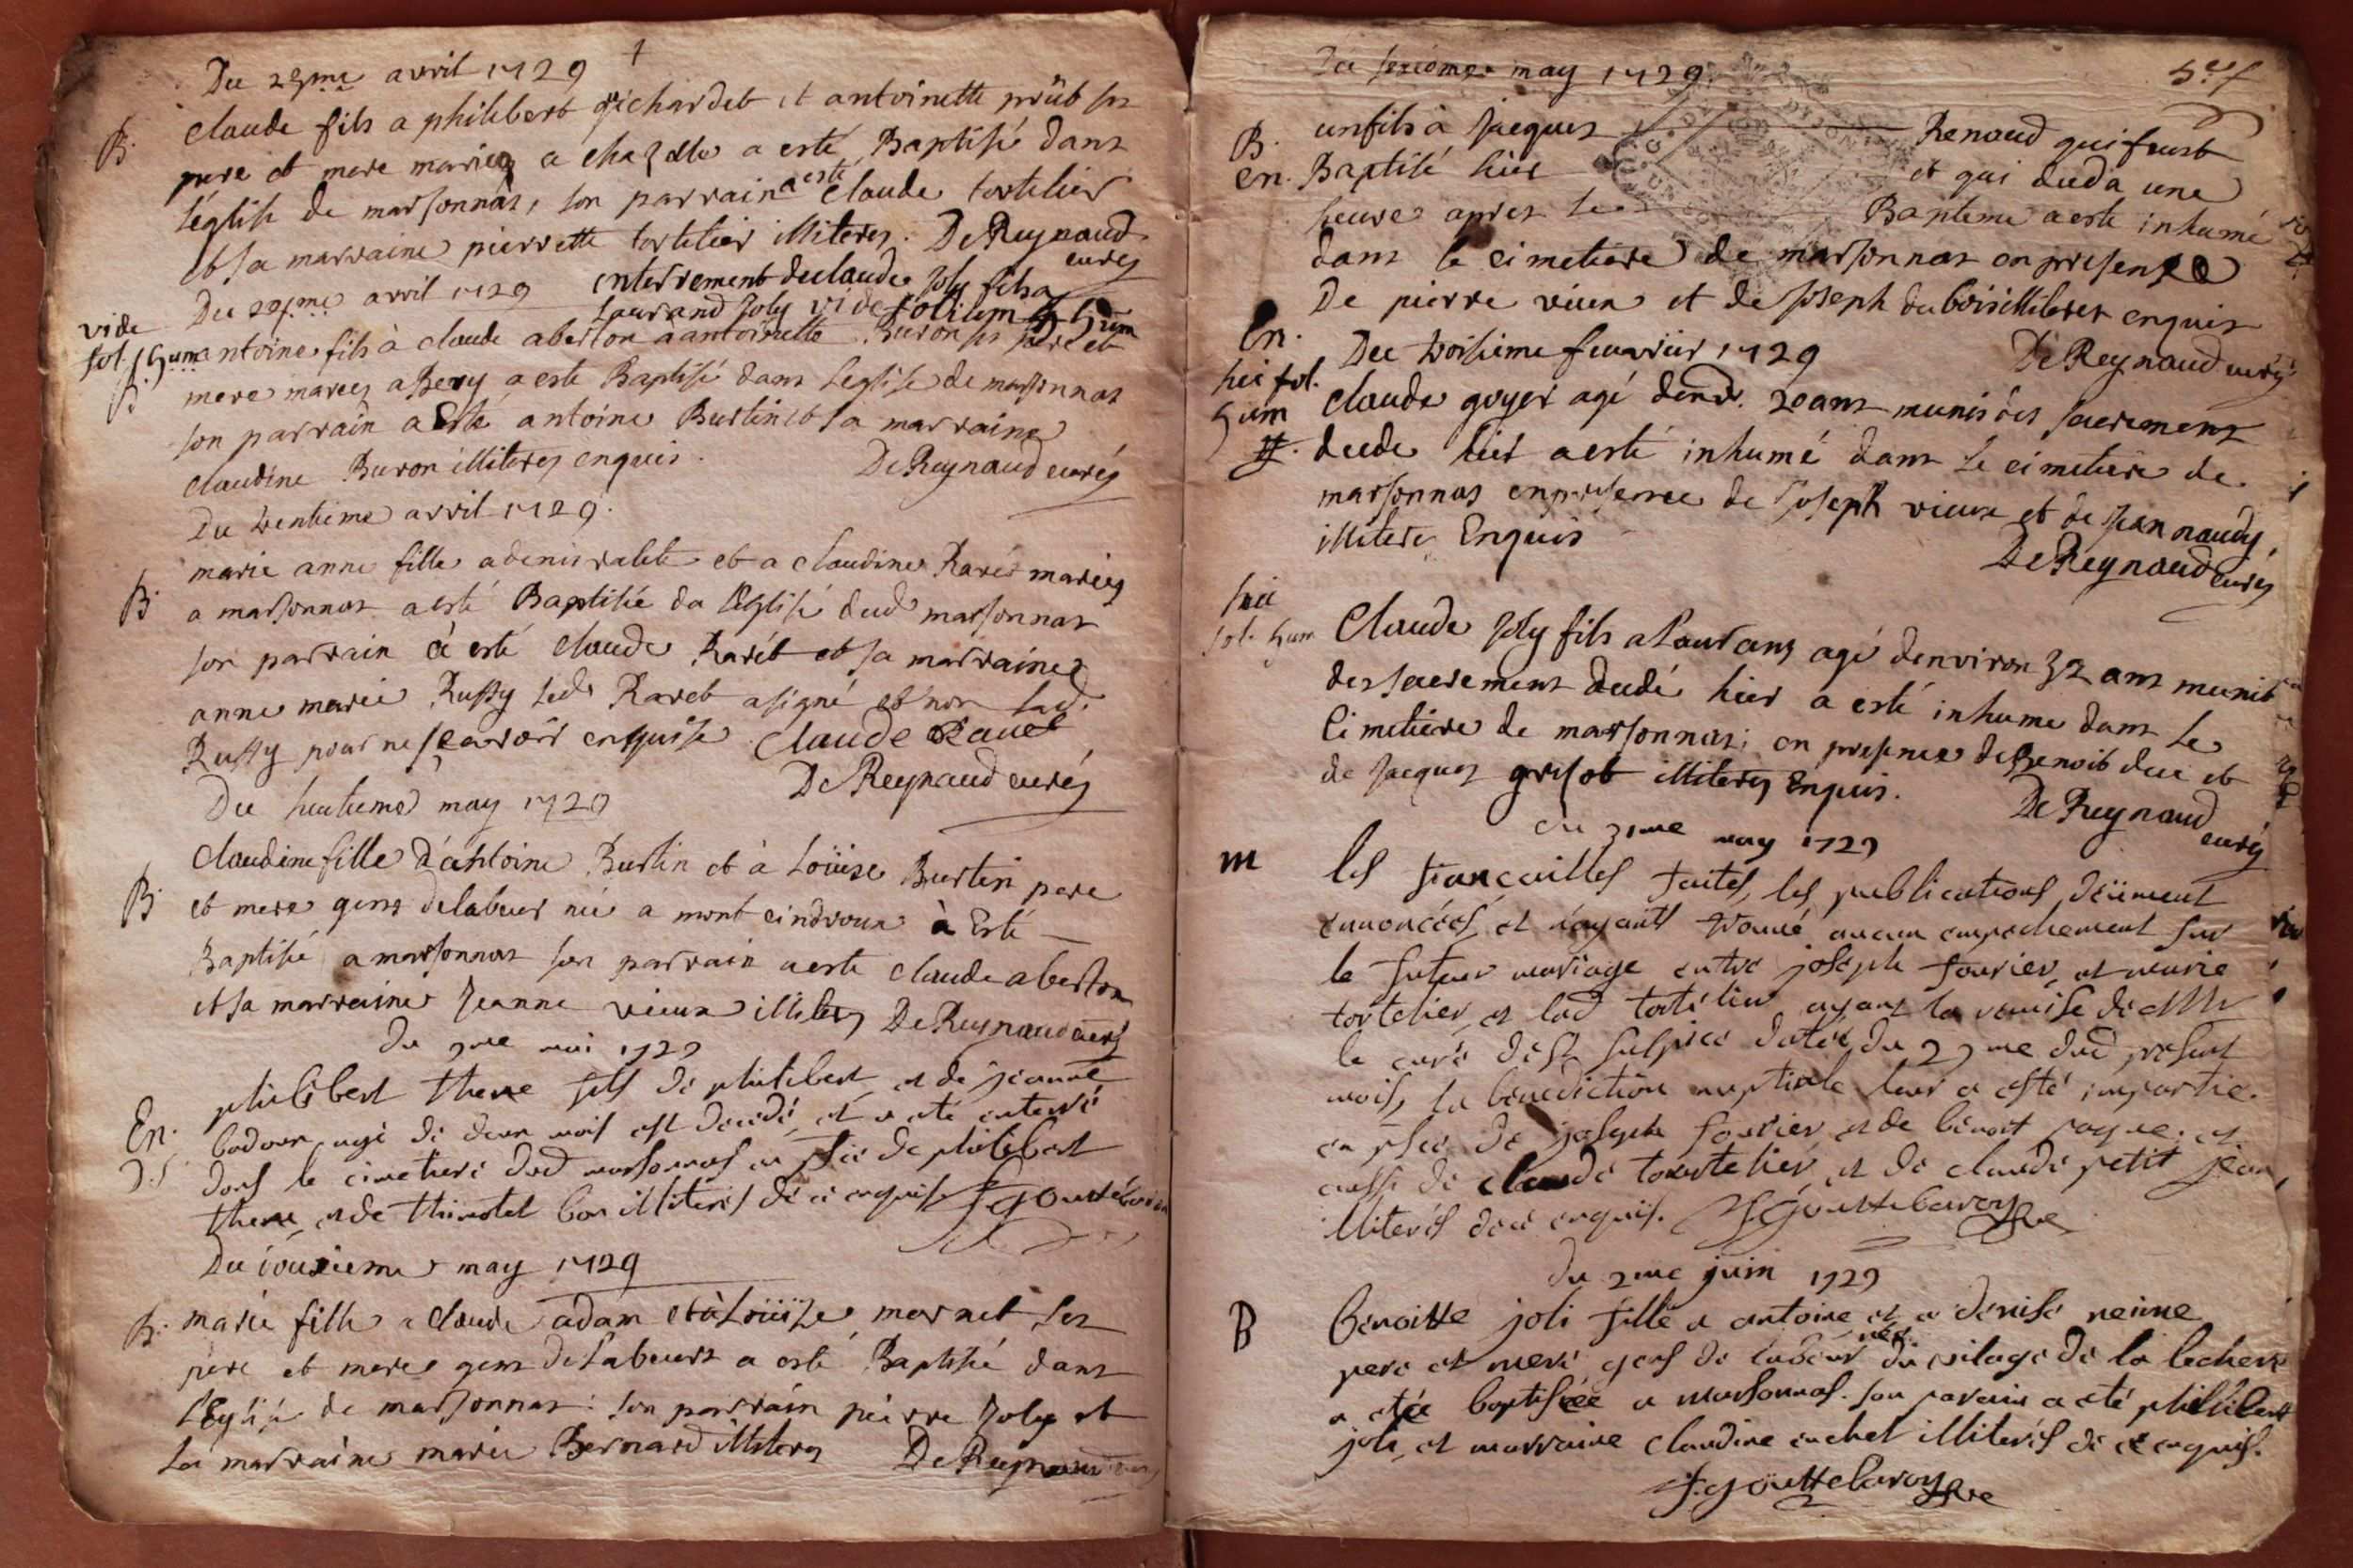 Du 28me avril 1729
B. Claude fils a philibert richardet et antoinette
pere et mere mariez a chazelle a esté Baptisé dans
l'église de marsonnas, son parrain a esté claude tortelier
et sa marraine pierrette tortelier illiterez. De Reynaud
curéz
Du 29me avril 1729 enterrement de claude joly fils a
Laurand Joly vide folium
vide
fol.
antoine fils à claude aberton a antoinette Buron ses pere et
B. mere mariez a esté Baptisé dans l'eglise de marsonnas
son parrain a Esté antoine Burtin et sa marraine
claudine Buron illiterez enquis. De Reynaud curéz
Du trentieme avril 1729.
marie anne fille a denis et a claudine Ravet mariez
B. a marsonnas a esté Baptisée da l'Eglise dud marsonnas
son parrain à esté claude Ravet et sa marraine
anne marie Ruffy led Ravet a signé et non lad.
Ruffy pour ne scavoir enquise Claude Ravet
De Reynaud curéz
Du huitieme may 1729
claudine fille d'antoine Burtin et à Loüise Burtin pere
B. et mere gens de labeur née a mont cindroux à Esté
Baptisée a marsonnas son parrain a esté claude aberton
et sa marraine Jeanne vieux illiterez De Reynaud curéz
du 9me mai 1729
philibert theve fils de philibert et de jeanne
En. badoux agé de deux mois est decedé, et a eté enterré
dans le cimetiere dud marsonnas en pñce de philibert
theve et de bon illiterés de ce enquis
Du may 1729
B. marie fille a claude adam et à Loüise mornet ses
pere et mere gens de labeurs a esté Baptisée dans
l'Eglise de marsonnas: son parrain pierre joly et
sa marraine marie Bernard illiterez De Reynaud
Du may 1729.
B. un fils à Jacques Renaud qui fust
en. Baptisé hier et qui duda une
heure apres le Bapteme a esté inhumé
dans le cimetiere de marsonnas en presence
De pierre vieux et de Joseph du bois illiterez enquis
De Reynaud curéz
En. Du troisieme feuvrier 1729
hic fol.
claude goyer agé denv. 20 ans munis des sacremens
decede hier a esté inhumé dans le cimetiere de
marsonnas en presence de Joseph vieux et de Jean naudy,
illitere Enquis
De Reynaud curéz
hic
fol.
Claude Joly fils a Laurans agé denviron 32 ans munit
des sacremens dedé hier a esté inhumé dans le
Cimetiere de marsonnas; en presence de Benoit duc et
de Jacques grisot illiterez Enquis.
De Reynaud
curéz
du 31me may 1729
m les fiançailles faites, les publications deüment
annoncées, et n'ayant trouvé aucun empechement sur
le futeur mariage entre joseph fourier, et marie
tortelier, et lad tortelier ayant la remise de
le curé de St Sulpice datée du 29me dud présent
mois, la bénediction nuptiale leur a esté impartie.
en pñce de joseph fourier, et de benoit et
aussi de claude tourtelier, et de claude petit jean,
illiterés de ce enquis.
du 2me juin 1729
B Benoitte joli fille a antoine et a denise
pere et mere gens de labeur du vilage de la lechere
a été baptisée a marsonnas. son parain a été philibert
joli, et marraine claudine cachet illiterés de ce enquis.